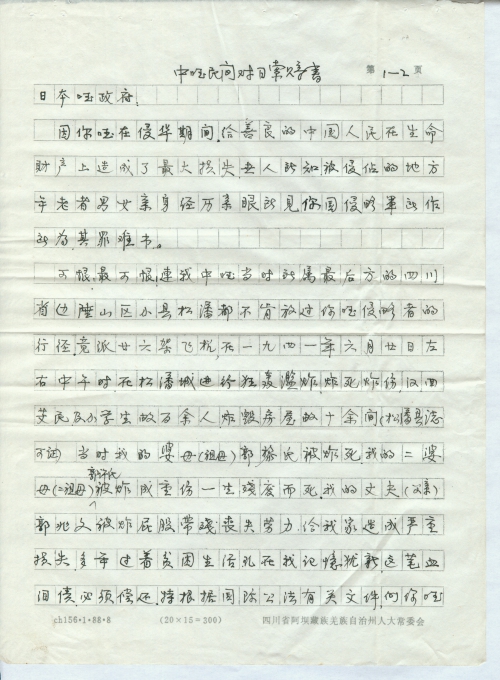 中国民间对日索赔书 第1-2页
日本国政府:
因你国在侵华期间,给善良的中国人民在生命
财产上造成了最大损失,世人所知被侵佔的地方
年老者男女亲身经历亲眼所见你国侵略军所作
所为,其罪难书。
可恨,最可恨,連我中国当时所属最后方的四川
省边陲山区小县松潘都不肯放过你国侵略者的
行径,竟派廿六架飞机,在一九四一年六月廿日左
右中午时,在松潘城进行狂轰滥炸,炸死炸伤,汉回
民及小学生余人炸毁房屋数十余间(松潘县志
可证)当时我的婆母(祖母)郭黎氏被炸死,我的二婆
母(二祖母)郭许氏被炸成重伤一生残废而死,我的丈夫(父亲)
郭兆文被炸屁股带残,丧失劳力,给我家造成严重
损失,多年过着贫困生活在我记憶犹新,这笔血
泪债,必须偿还,特根据国际公法有关文件,向你国
ch156·1·88·8 (20×15=300) 四川省阿坝藏族羌族自治州人大常委会